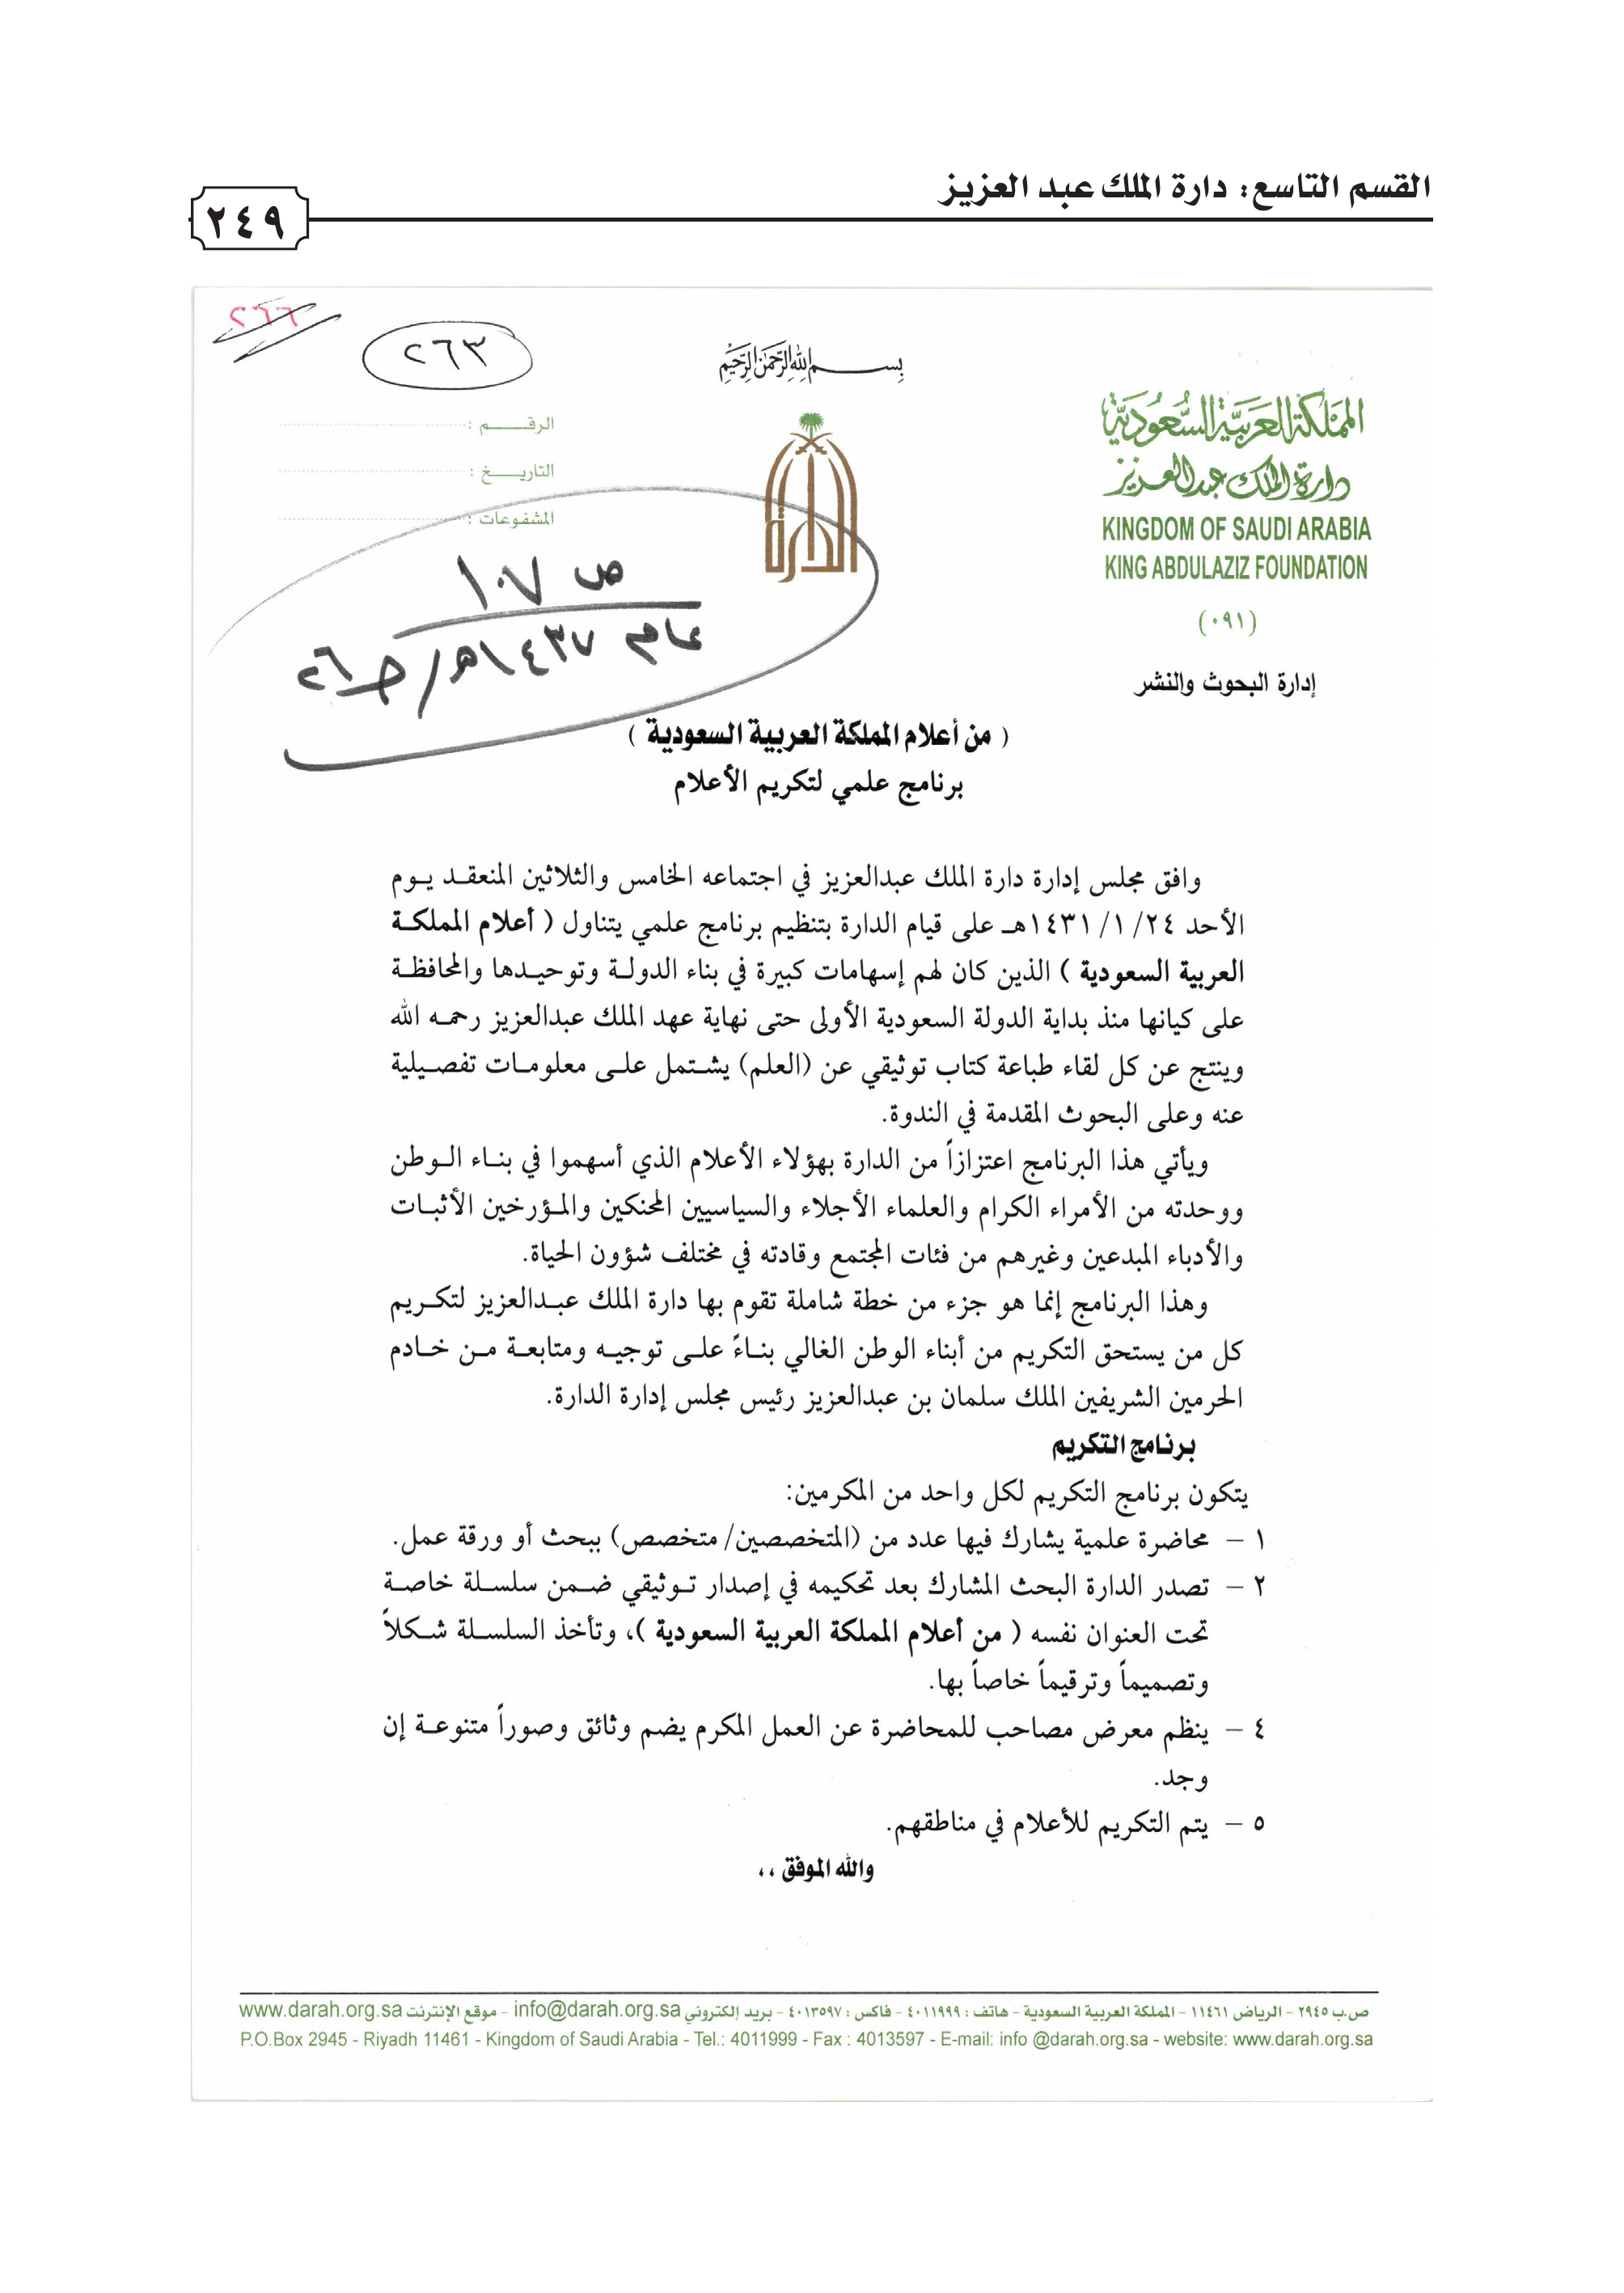 القسم التاسع: دارة الملك عبد العزيز
٢٤٩
٢٦٦
٢٦٣
بسم الله الرحمن الرحيم
المملكة العربية السعودية
دارة الملك عبدالعزيز
KINGDOM OF SAUDI ARABIA
KING ABDULAZIZ FOUNDATION
(٠٩١)
إدارة البحوث والنشر
الرقم :
التاريخ :
المشفوعات :
الدارة
ص ١٠٧
عام ١٤٣٧هـ/ج٢٦
( من أعلام المملكة العربية السعودية )
برنامج علمي لتكريم الأعلام
وافق مجلس إدارة دارة الملك عبدالعزيز في اجتماعه الخامس والثلاثين المنعقد يوم
الأحد ١٤٣١/١/٢٤هـ على قيام الدارة بتنظيم برنامج علمي يتناول ( أعلام المملكة
العربية السعودية ) الذين كان لهم إسهامات كبيرة في بناء الدولة وتوحيدها والمحافظة
على كيانها منذ بداية الدولة السعودية الأولى حتى نهاية عهد الملك عبدالعزيز رحمه الله
وينتج عن كل لقاء طباعة كتاب توثيقي عن (العلم) يشتمل على معلومات تفصيلية
عنه وعلى البحوث المقدمة في الندوة.
ويأتي هذا البرنامج اعتزازاً من الدارة بهؤلاء الأعلام الذي أسهموا في بناء الوطن
ووحدته من الأمراء الكرام والعلماء الأجلاء والسياسيين المحنكين والمؤرخين الأثبات
والأدباء المبدعين وغيرهم من فئات المجتمع وقادته في مختلف شؤون الحياة.
وهذا البرنامج إنما هو جزء من خطة شاملة تقوم بها دارة الملك عبدالعزيز لتكريم
كل من يستحق التكريم من أبناء الوطن الغالي بناءً على توجيه ومتابعة من خادم
الحرمين الشريفين الملك سلمان بن عبدالعزيز رئيس مجلس إدارة الدارة.
برنامج التكريم
يتكون برنامج التكريم لكل واحد من المكرمين:
١ – محاضرة علمية يشارك فيها عدد من (المتخصصين/ متخصص) ببحث أو ورقة عمل.
٢ – تصدر الدارة البحث المشارك بعد تحكيمه في إصدار توثيقي ضمن سلسلة خاصة
تحت العنوان نفسه ( من أعلام المملكة العربية السعودية )، وتأخذ السلسلة شكلاً
وتصميماً وترقيماً خاصاً بها.
٤ – ينظم معرض مصاحب للمحاضرة عن العمل المكرم يضم وثائق وصوراً متنوعة إن
وجد.
٥ – يتم التكريم للأعلام في مناطقهم.
والله الموفق ،،
ص.ب ٢٩٤٥ - الرياض ١١٤٦١ - المملكة العربية السعودية - هاتف : ٤٠١١٩٩٩ - فاكس : ٤٠١٣٥٩٧ - بريد إلكتروني info@darah.org.sa - موقع الإنترنت www.darah.org.sa
P.O.Box 2945 - Riyadh 11461 - Kingdom of Saudi Arabia - Tel.: 4011999 - Fax : 4013597 - E-mail: info @darah.org.sa - website: www.darah.org.sa